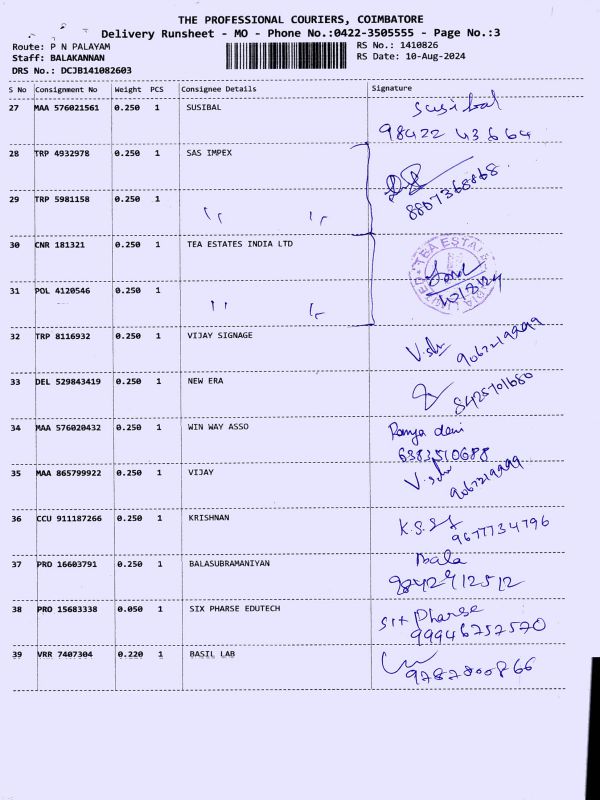 THE PROFESSIONAL COURIERS, COIMBATORE
Delivery Runsheet - MO - Phone No.:0422-3505555 - Page No.:3
Route: P N PALAYAM
Staff: BALAKANNAN
DRS No.: DCJB141082603
RS No.: 1410826
RS Date: 10-Aug-2024
S No Consignment No Weight PCS Consignee Details Signature
27 MAA 576021561 0.250 1 SUSIBAL susibal
98422 43664
28 TRP 4932978 0.250 1 SAS IMPEX
8807368868
29 TRP 5981158 0.250 1 " "
30 CNR 181321 0.250 1 TEA ESTATES INDIA LTD
TEA ESTA
31 POL 4120546 0.250 1 " "
32 TRP 8116932 0.250 1 VIJAY SIGNAGE
9067219999
33 DEL 529843419 0.250 1 NEW ERA
8425701680
34 MAA 576020432 0.250 1 WIN WAY ASSO Ramya devi
6383510688
35 MAA 865799922 0.250 1 VIJAY
9067219999
36 CCU 911187266 0.250 1 KRISHNAN
9677734796
37 PRO 16603791 0.250 1 BALASUBRAMANIYAN Bala
9842912512
38 PRO 15683338 0.050 1 SIX PHARSE EDUTECH Six Pharse
99946752570
39 VRR 7407304 0.220 1 BASIL LAB
9787800866